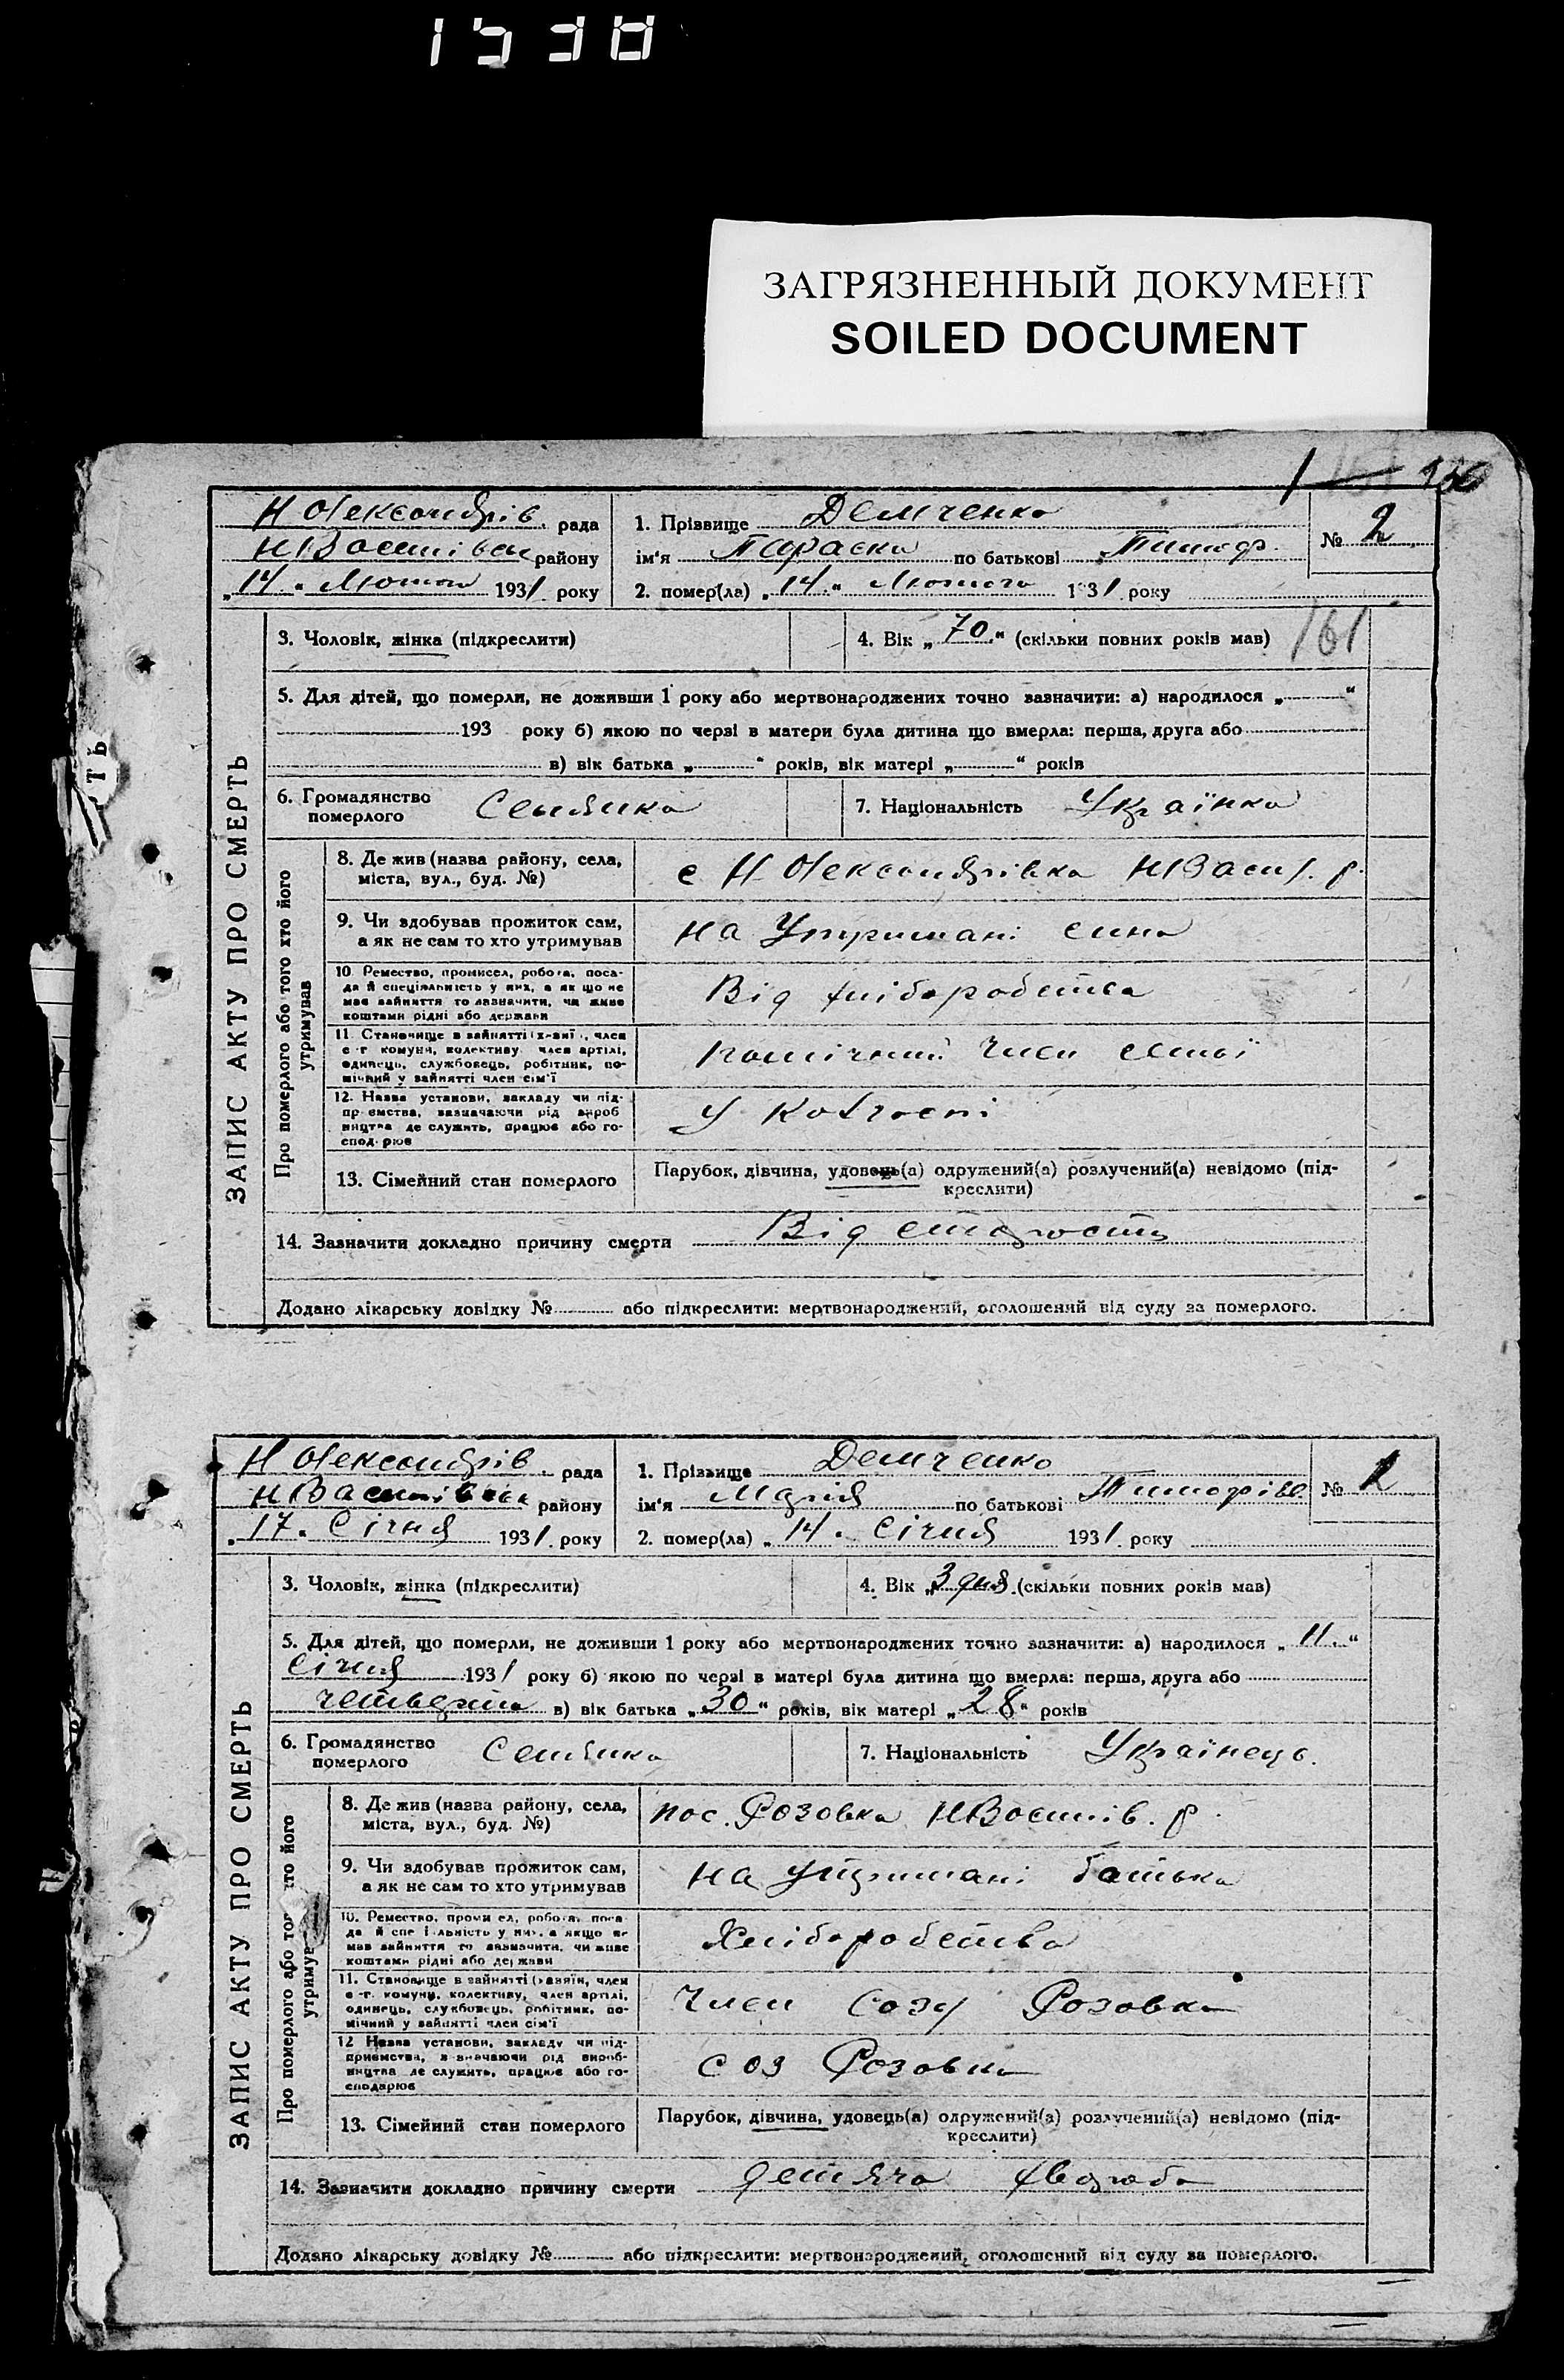 1538
ЗАГРЯЗНЕННЫЙ ДОКУМЕНТ
SOILED DOCUMENT
1 — 150
ЗАПИС АКТУ ПРО СМЕРТЬ
Н Олександрів. рада
НВасилівськ району
„14“ Лютого 1931 року
1. Прізвище Демченко
ім'я Параска по батькові Тимоф.
№ 2
2. помер(ла) „14“ Лютого 1931 року
3. Чоловік, жінка (підкреслити)
4. Вік „70“ (скільки повних років мав)
161
5. Для дітей, що померли, не доживши 1 року або мертвонароджених точно зазначити: а) народилося „ “
193 року б) якою по черзі в матери була дитина що вмерла: перша, друга або
в) вік батька „ “ років, вік матері „ “ років
6. Громадянство померлого
7. Національність Українка
Про померлого або того хто його утримував
8. Де жив (назва району, села, міста, вул., буд. №)
с Н Олександрівка НВасил. р.
9. Чи здобував прожиток сам, а як не сам то хто утримував
на Утримані сина
10. Ремество, промисел, робота, посада й спеціяльність у них, а якщо не має зайняття то зазначити, чи живе коштами рідні або держави
Від хліборобства
11. Становище в зайнятті (хазяїн, член с.-г. комуни, колективу, член артілі, одинець, службовець, робітник, помічний у зайнятті член сім'ї
помічний член семьї
12. Назва установи, закладу чи підприємства, зазначаючи рід виробництва де служить, працює або господарює
У Колгоспі
13. Сімейний стан померлого
Парубок, дівчина, удовець(а) одружений(а) розлучений(а) невідомо (підкреслити)
14. Зазначити докладно причину смерти Від старости
Додано лікарську довідку № або підкреслити: мертвонароджений, оголошений від суду за померлого.
ЗАПИС АКТУ ПРО СМЕРТЬ
Н Олександрів. рада
НВасилівськ району
„17“ Січня 1931 року
1. Прізвище Демченко
ім'я Марія по батькові Тимофів.
№ 1
2. помер(ла) „14“ Січня 1931 року
3. Чоловік, жінка (підкреслити)
4. Вік „3 дня“ (скільки повних років мав)
5. Для дітей, що померли, не доживши 1 року або мертвонароджених точно зазначити: а) народилося „11“
Січня 1931 року б) якою по черзі в матері була дитина що вмерла: перша, друга або
четверта в) вік батька „30“ років, вік матері „28“ років
6. Громадянство померлого
7. Національність Українець.
Про померлого або того хто його утримував
8. Де жив (назва району, села, міста, вул., буд. №)
пос. Розовка НВасилів. р.
9. Чи здобував прожиток сам, а як не сам то хто утримував
на утримані батька
10. Ремество, промисел, робота, посада й спеціяльність у них, а якщо не має зайняття то зазначити, чи живе коштами рідні або держави
Хліборобства
11. Становище в зайнятті (хазяїн, член с.-г. комуни, колективу, член артілі, одинець, службовець, робітник, помічний у зайнятті член сім'ї
Член Созу Розовка
12. Назва установи, закладу чи підприємства, зазначаючи рід виробництва де служить, працює або господарює
СОЗ Розовка
13. Сімейний стан померлого
Парубок, дівчина, удовець(а) одружений(а) розлучений(а) невідомо (підкреслити)
14. Зазначити докладно причину смерти детяча хвороба
Додано лікарську довідку № або підкреслити: мертвонароджений, оголошений від суду за померлого.